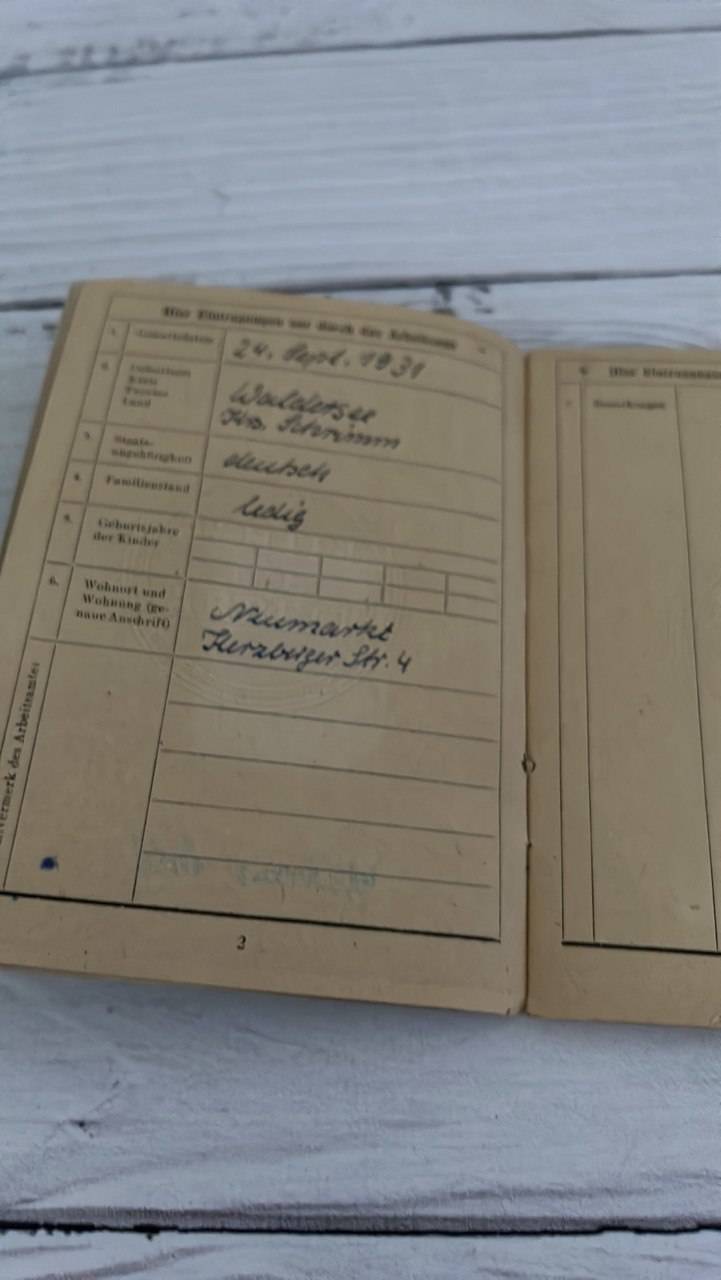 Hier Eintragungen nur durch das Arbeitsamt
1. Geburtsdatum
24. Sept. 1931
2. Geburtsort
Kreis
Land
Waldetsee
Krs. Schrimm
3. Staats-
angehörigkeit
deutsch
4. Familienstand
ledig
5. Geburtsjahre
der Kinder
6. Wohnort und
Wohnung (ge-
naue Anschrift)
Neumarkt
Herzberger Str. 4
vermerk des Arbeitsamtes
3
Hier Eintragungen
Bemerkungen